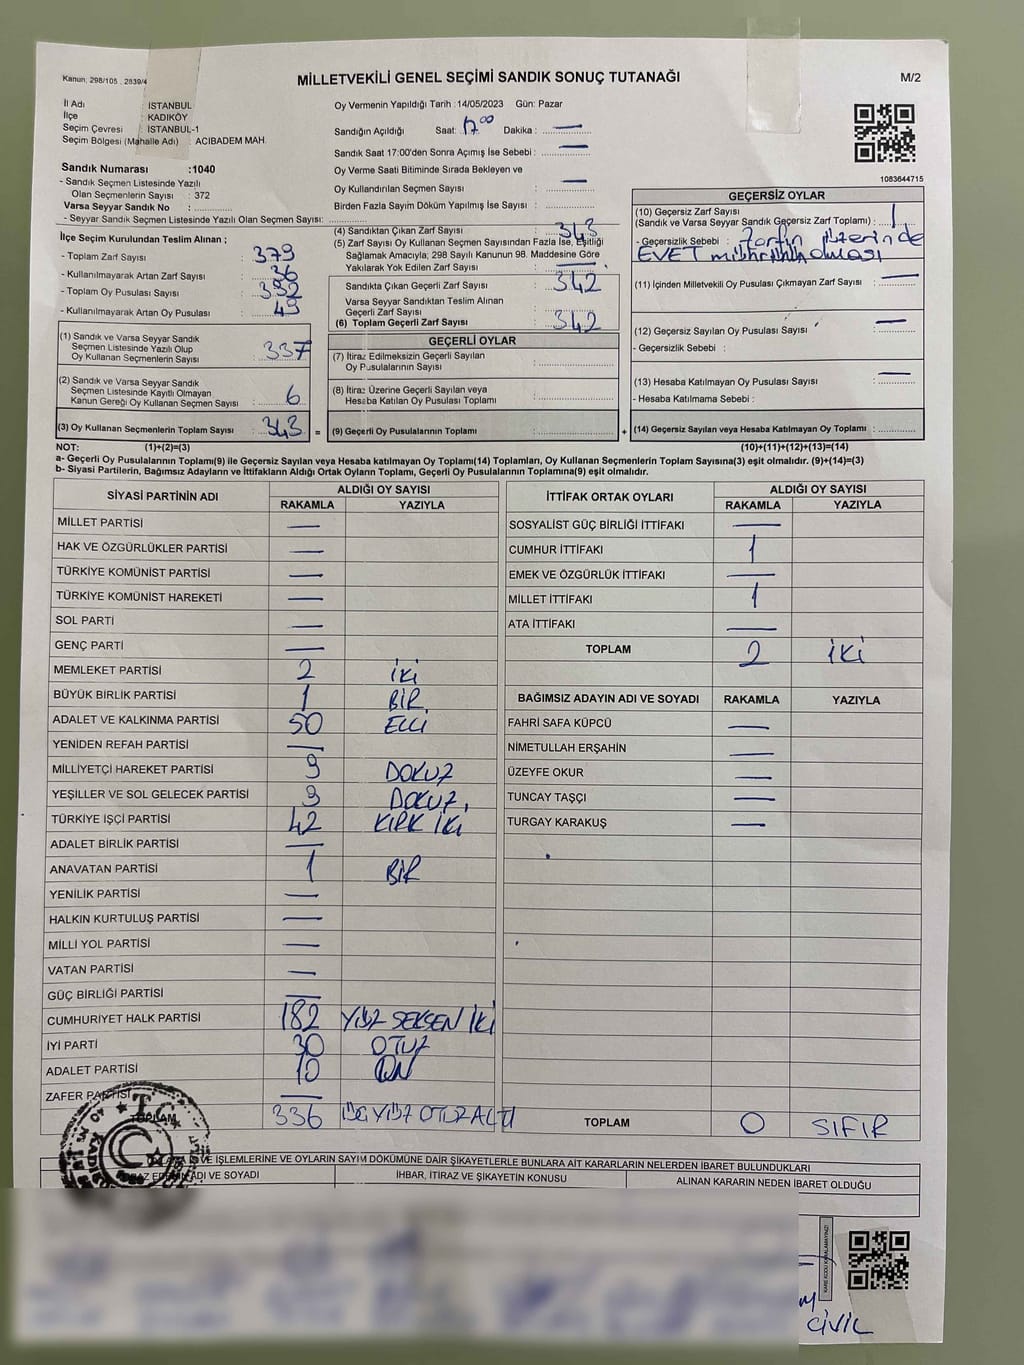 Kanun; 298/105 . 2839/4
MİLLETVEKİLİ GENEL SEÇİMİ SANDIK SONUÇ TUTANAĞI
M/2
İl Adı : İSTANBUL
İlçe : KADIKÖY
Seçim Çevresi : İSTANBUL-1
Seçim Bölgesi (Mahalle Adı) : ACIBADEM MAH.
Oy Vermenin Yapıldığı Tarih :14/05/2023 Gün: Pazar
Sandığın Açıldığı Saat: 17 00 Dakika : —
Sandık Saat 17:00'den Sonra Açımış İse Sebebi : —
Sandık Numarası :1040
- Sandık Seçmen Listesinde Yazılı
Olan Seçmenlerin Sayısı : 372
Varsa Seyyar Sandık No :
- Seyyar Sandık Seçmen Listesinde Yazılı Olan Seçmen Sayısı:
Oy Verme Saati Bitiminde Sırada Bekleyen ve
Oy Kullandırılan Seçmen Sayısı : —
Birden Fazla Sayım Döküm Yapılmış İse Sayısı :
1083644715
İlçe Seçim Kurulundan Teslim Alınan ;
- Toplam Zarf Sayısı : 379
- Kullanılmayarak Artan Zarf Sayısı : 36
- Toplam Oy Pusulası Sayısı : 392
- Kullanılmayarak Artan Oy Pusulası : 49
(1) Sandık ve Varsa Seyyar Sandık
Seçmen Listesinde Yazılı Olup
Oy Kullanan Seçmenlerin Sayısı : 337
(2) Sandık ve Varsa Seyyar Sandık
Seçmen Listesinde Kayıtlı Olmayan
Kanun Gereği Oy Kullanan Seçmen Sayısı : 6
(3) Oy Kullanan Seçmenlerin Toplam Sayısı : 343 =
(4) Sandıktan Çıkan Zarf Sayısı : 343
(5) Zarf Sayısı Oy Kullanan Seçmen Sayısından Fazla İse, Eşitliği
Sağlamak Amacıyla; 298 Sayılı Kanunun 98. Maddesine Göre
Yakılarak Yok Edilen Zarf Sayısı : —
Sandıkta Çıkan Geçerli Zarf Sayısı : 342
Varsa Seyyar Sandıktan Teslim Alınan
Geçerli Zarf Sayısı :
(6) Toplam Geçerli Zarf Sayısı : 342
GEÇERLİ OYLAR
(7) İtiraz Edilmeksizin Geçerli Sayılan
Oy Pusulalarının Sayısı :
(8) İtiraz Üzerine Geçerli Sayılan veya
Hesaba Katılan Oy Pusulası Toplamı :
(9) Geçerli Oy Pusulalarının Toplamı : +
GEÇERSİZ OYLAR
(10) Geçersiz Zarf Sayısı
(Sandık ve Varsa Seyyar Sandık Geçersiz Zarf Toplamı) : 1
- Geçersizlik Sebebi : Zarfın üzerinde
EVET mührünün olması
(11) İçinden Milletvekili Oy Pusulası Çıkmayan Zarf Sayısı : —
(12) Geçersiz Sayılan Oy Pusulası Sayısı : —
- Geçersizlik Sebebi :
(13) Hesaba Katılmayan Oy Pusulası Sayısı : —
- Hesaba Katılmama Sebebi :
(14) Geçersiz Sayılan veya Hesaba Katılmayan Oy Toplamı :
NOT: (1)+(2)=(3) (10)+(11)+(12)+(13)=(14)
a- Geçerli Oy Pusulalarının Toplamı(9) ile Geçersiz Sayılan veya Hesaba katılmayan Oy Toplamı(14) Toplamları, Oy Kullanan Seçmenlerin Toplam Sayısına(3) eşit olmalıdır. (9)+(14)=(3)
b- Siyasi Partilerin, Bağımsız Adayların ve İttifakların Aldığı Ortak Oyların Toplamı, Geçerli Oy Pusulalarının Toplamına(9) eşit olmalıdır.
SİYASİ PARTİNİN ADI ALDIĞI OY SAYISI
RAKAMLA YAZIYLA
MİLLET PARTİSİ —
HAK VE ÖZGÜRLÜKLER PARTİSİ —
TÜRKİYE KOMÜNİST PARTİSİ —
TÜRKİYE KOMÜNİST HAREKETİ —
SOL PARTİ —
GENÇ PARTİ —
MEMLEKET PARTİSİ 2 İKİ
BÜYÜK BİRLİK PARTİSİ 1 BİR
ADALET VE KALKINMA PARTİSİ 50 ELLİ
YENİDEN REFAH PARTİSİ —
MİLLİYETÇİ HAREKET PARTİSİ 9 DOKUZ
YEŞİLLER VE SOL GELECEK PARTİSİ 9 DOKUZ
TÜRKİYE İŞÇİ PARTİSİ 42 KIRK İKİ
ADALET BİRLİK PARTİSİ —
ANAVATAN PARTİSİ 1 BİR
YENİLİK PARTİSİ —
HALKIN KURTULUŞ PARTİSİ —
MİLLİ YOL PARTİSİ —
VATAN PARTİSİ —
GÜÇ BİRLİĞİ PARTİSİ —
CUMHURİYET HALK PARTİSİ 182 YÜZ SEKSEN İKİ
İYİ PARTİ 30 OTUZ
ADALET PARTİSİ 10 ON
ZAFER PARTİSİ —
TOPLAM 336 ÜÇ YÜZ OTUZ ALTI
İTTİFAK ORTAK OYLARI ALDIĞI OY SAYISI
RAKAMLA YAZIYLA
SOSYALİST GÜÇ BİRLİĞİ İTTİFAKI —
CUMHUR İTTİFAKI 1
EMEK VE ÖZGÜRLÜK İTTİFAKI —
MİLLET İTTİFAKI 1
ATA İTTİFAKI —
TOPLAM 2 İKİ
BAĞIMSIZ ADAYIN ADI VE SOYADI RAKAMLA YAZIYLA
FAHRİ SAFA KÜPCÜ —
NİMETULLAH ERŞAHİN —
ÜZEYFE OKUR —
TUNCAY TAŞÇI —
TURGAY KARAKUŞ —
TOPLAM 0 SIFIR
T.C.
VE İŞLEMLERİNE VE OYLARIN SAYIM DÖKÜMÜNE DAİR ŞİKAYETLERLE BUNLARA AİT KARARLARIN NELERDEN İBARET BULUNDUKLARI
ADI VE SOYADI İHBAR, İTİRAZ VE ŞİKAYETİN KONUSU ALINAN KARARIN NEDEN İBARET OLDUĞU
CİVİL